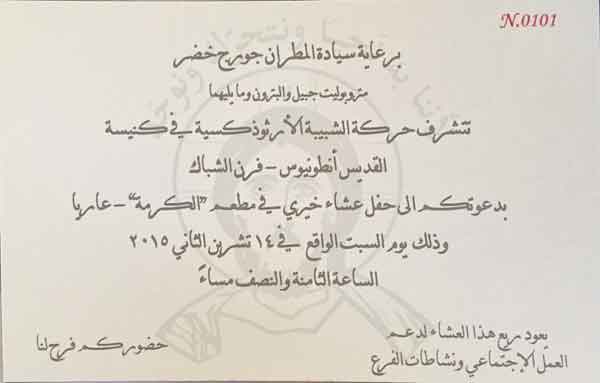 N.0101
برعاية سيادة المطران جورج خضر
متروبوليت جبيل والبترون وما يليهما
تتشرف حركة الشبيبة الأرثوذكسية في كنيسة
القديس أنطونيوس - فرن الشباك
بدعوتكم الى حفل عشاء خيري في مطعم "الكرمة" - عاريا
وذلك يوم السبت الواقع في ١٤ تشرين الثاني ٢٠١٥
الساعة الثامنة والنصف مساءً
يعود ريع هذا العشاء لدعم
العمل الإجتماعي ونشاطات الفرع
حضوركم فرح لنا